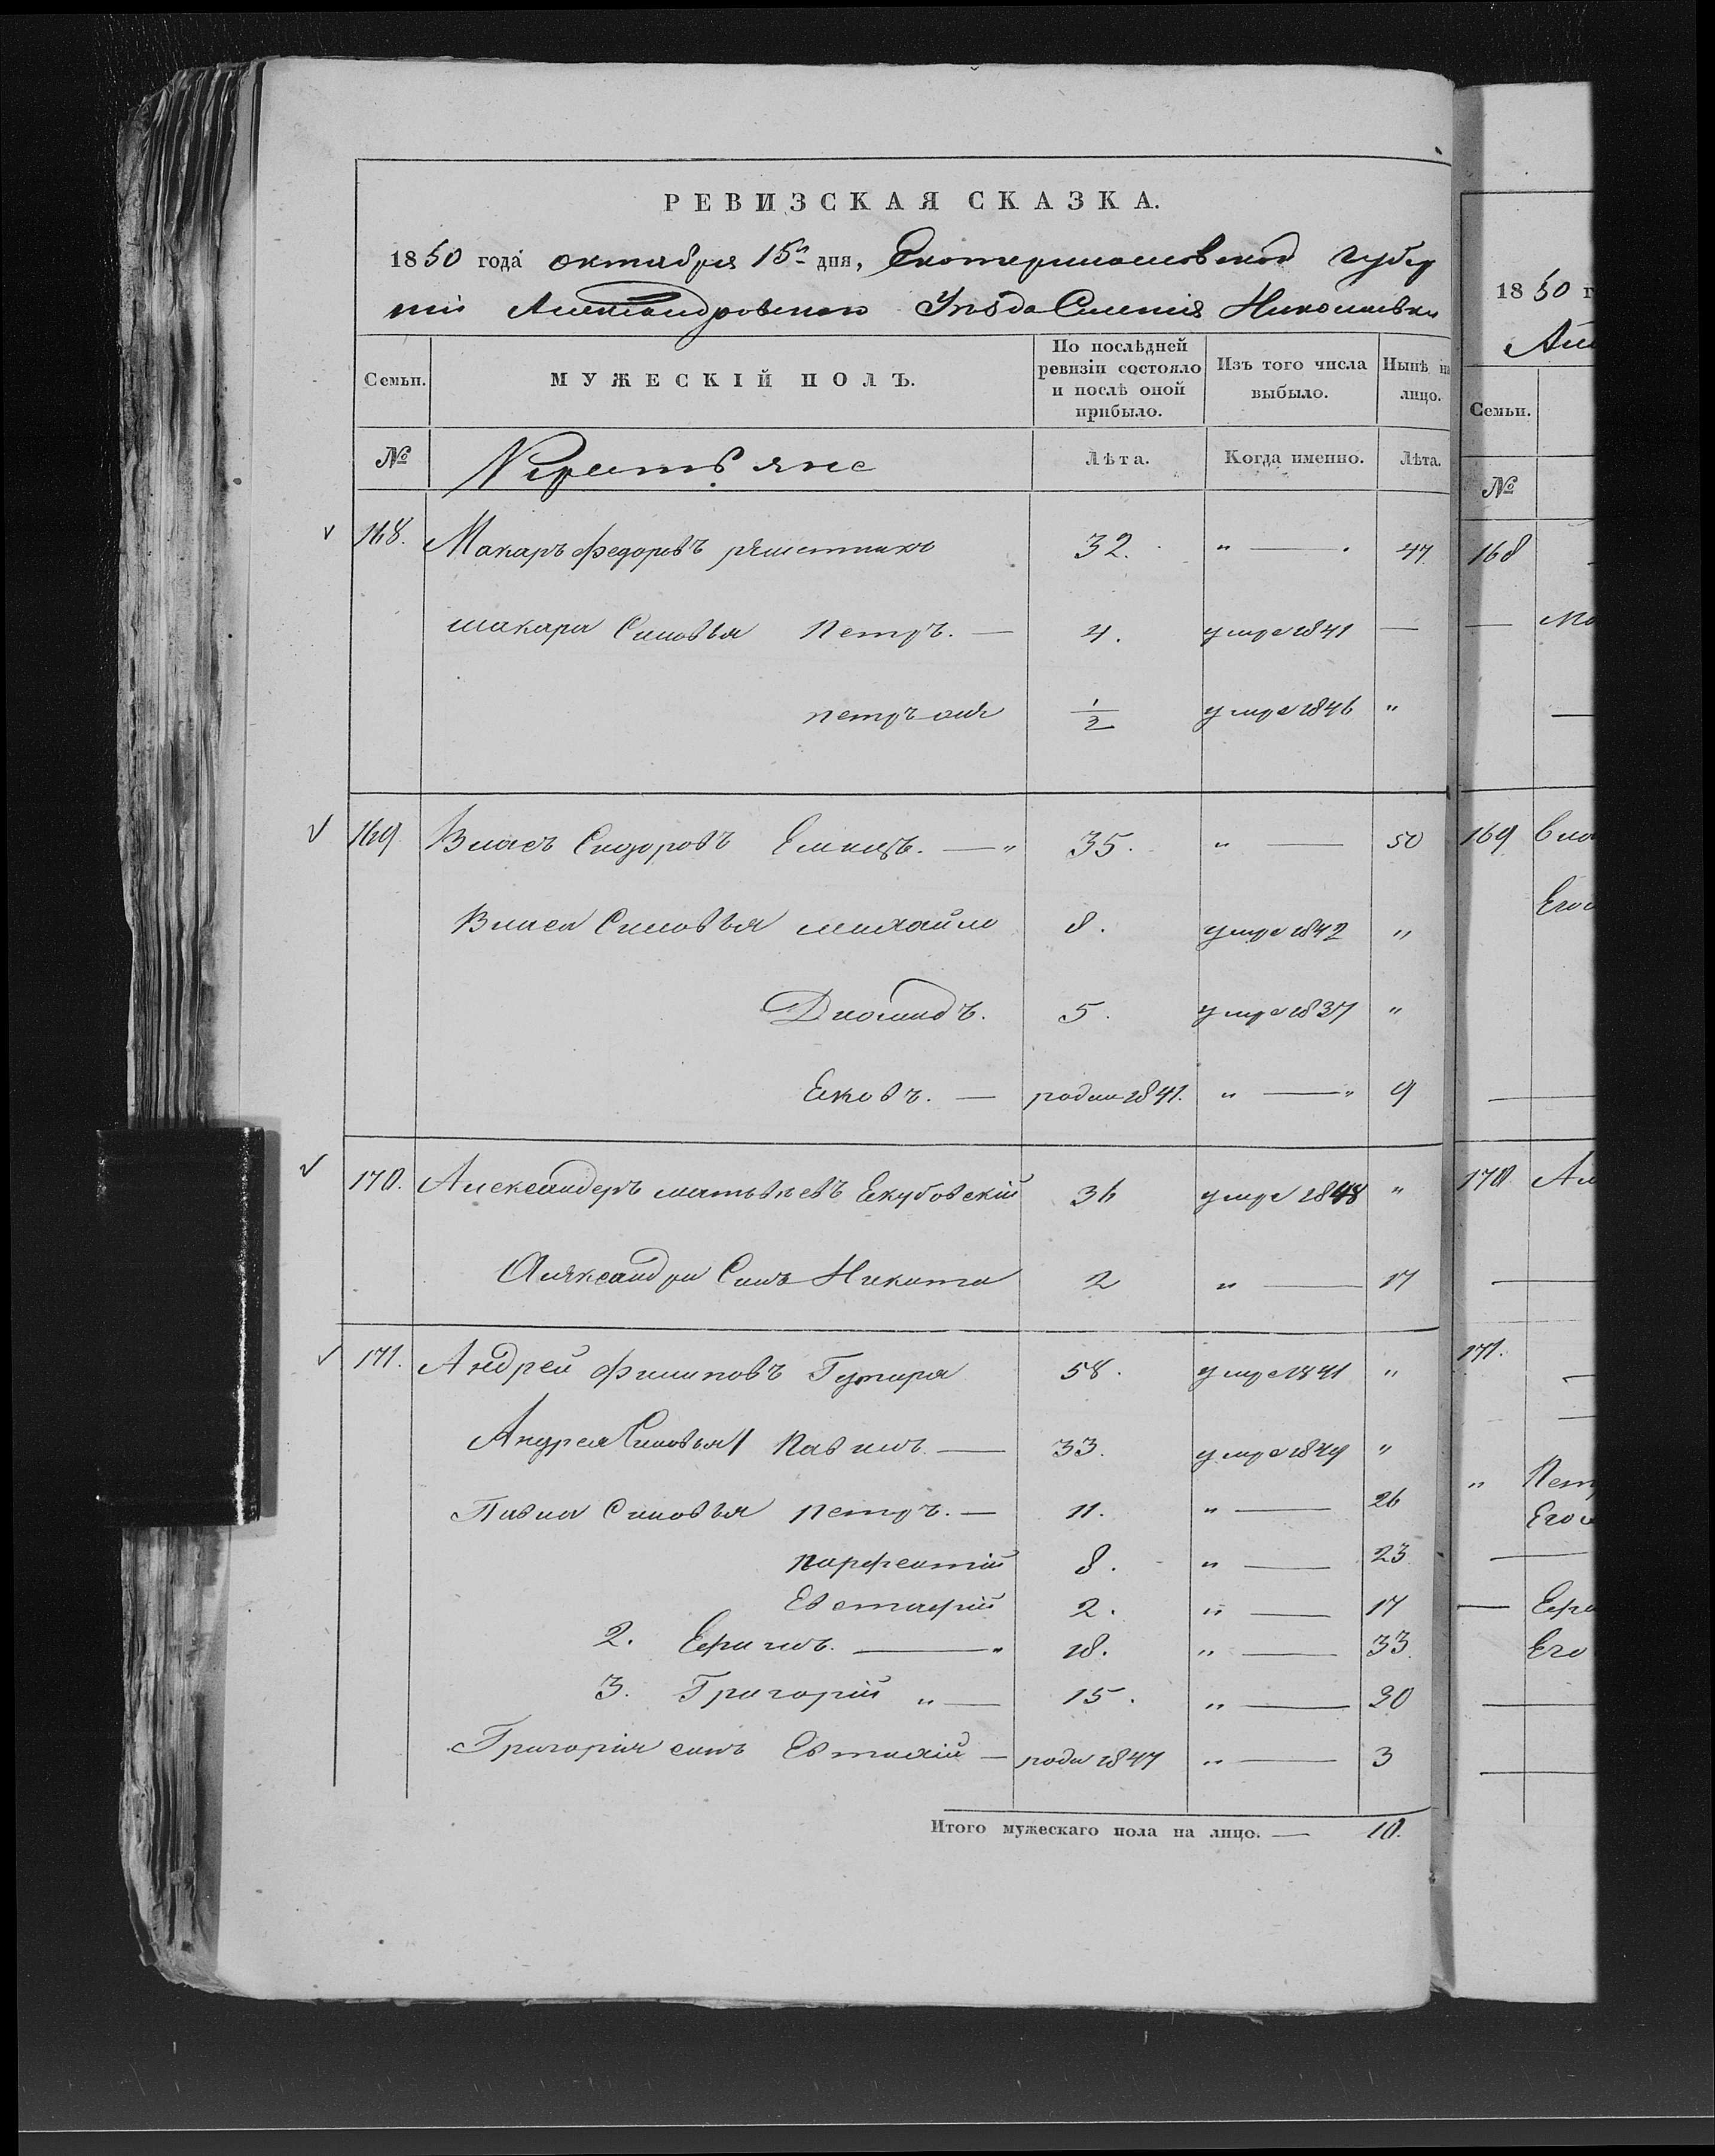 РЕВИЗСКАЯ СКАЗКА.
1850 года октября 15го дня, Екатеринославской губер
ніи Александровского Уѣзда Селенія Николаевки
Семьи. МУЖЕСКІЙ ПОЛЪ. По послѣдней ревизіи состояло и послѣ оной прибыло. Изъ того числа выбыло. Нынѣ на лицо.
№ Крестьяне Лѣта. Когда именно. Лѣта.
168. Макаръ Федоровъ 32. " — 47
макара Синовья Петръ. — 4. умре 1841 —
петръ 1/2 умре 1846 "
169 Власъ Сидоровъ —" 35. " — 50
Власа Синовья михайло 8. умре 1842 "
Диомидъ. 5. умре 1837 "
Ековъ. — родил 1841. " —" 9
170. Александеръ матвѣевъ Екубовскій 36 умре 1848 "
Аляксандра Синъ Никита 2 " — 17
171. Андрей Филиповъ 58. умре 1841 "
Андрея Синовья 1 Павилъ — 33. умре 1849 "
Павла Синовья петръ. — 11. " — 26
парфентій 8. " — 23
Евстафій 2. " — 17
2. —" 18. " — 33
3. Григорій " — 15. " — 30
Григорія синъ Евтихій — роди 1847 " — 3
Итого мужескаго пола на лицо. — 10.
1850 г
Але
Семьи.
№
168
— Ма
—
169 Вла
Его
—
170 Ал
—
171.
—
" Пет
Его
—
—
Его
—
—